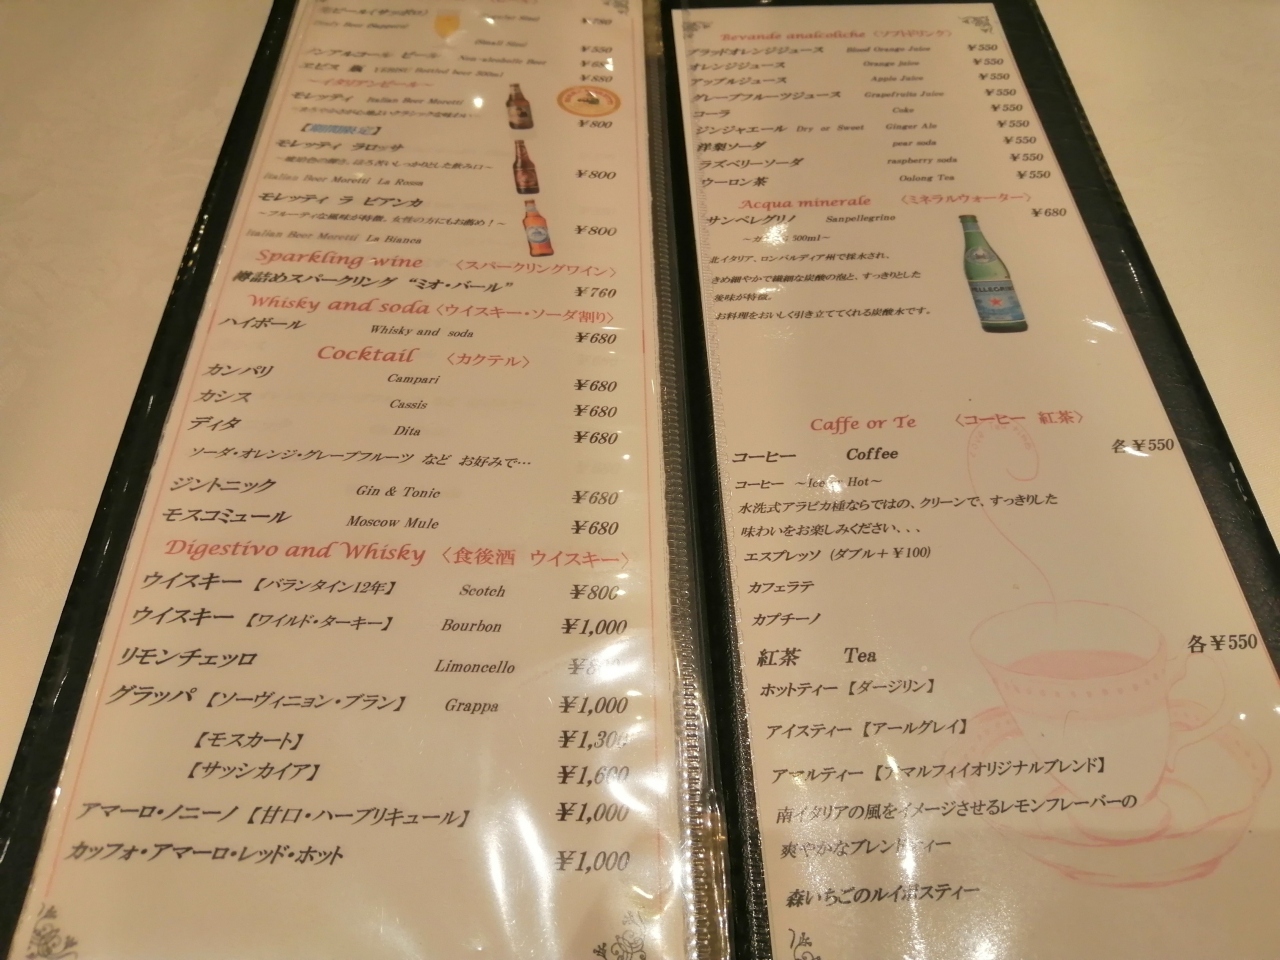 生ビール(サッポロ)
¥780
(Small Size)
¥550
ノンアルコール ビール Non-alcoholic Beer
エビス 瓶
¥880
～イタリアンビール～
モレッティ Italian Beer Moretti
¥800
【期間限定】
モレッティ ラロッサ
¥800
Italian Beer Moretti La Rossa
モレッティ ラ ビアンカ
～フルーティな風味が特徴、女性の方にもお薦め！～
¥800
Italian Beer Moretti La Bianca
Sparkling wine 〈スパークリングワイン〉
樽詰めスパークリング “ミオ・バール” ¥760
Whisky and soda〈ウイスキー・ソーダ割り〉
ハイボール Whisky and soda ¥680
Cocktail 〈カクテル〉
カンパリ Campari ¥680
カシス Cassis ¥680
ディタ Dita ¥680
ソーダ・オレンジ・グレープフルーツ など お好みで…
ジントニック Gin & Tonic ¥680
モスコミュール Moscow Mule ¥680
Digestivo and Whisky 〈食後酒 ウイスキー〉
ウイスキー【バランタイン12年】 Scotch ¥800
ウイスキー【ワイルド・ターキー】 Bourbon ¥1,000
リモンチェッロ Limoncello
グラッパ【ソーヴィニョン・ブラン】 Grappa ¥1,000
【モスカート】 ¥1,300
【サッシカイア】 ¥1,600
アマーロ・ノニーノ【甘口・ハーブリキュール】 ¥1,000
カッフォ・アマーロ・レッド・ホット ¥1,000
Bevande analcoliche〈ソフトドリンク〉
ブラッドオレンジジュース Blood Orange Juice ¥550
オレンジジュース Orange juice ¥550
アップルジュース Apple Juice ¥550
グレープフルーツジュース Grapefruits Juice ¥550
コーラ Coke ¥550
ジンジャエール Dry or Sweet Ginger Ale ¥550
洋梨ソーダ pear soda ¥550
ラズベリーソーダ raspberry soda ¥550
ウーロン茶 Oolong Tea ¥550
Acqua minerale 〈ミネラルウォーター〉
サンペレグリノ Sanpellegrino ¥680
500ml～
北イタリア、ロンバルディア州で採水され、
きめ細やかで繊細な炭酸の泡と、すっきりとした
後味が特徴。
お料理をおいしく引き立ててくれる炭酸水です。
Caffe or Te 〈コーヒー 紅茶〉
コーヒー Coffee 各¥550
コーヒー ～Ice or Hot～
水洗式アラビカ種ならではの、クリーンで、すっきりした
味わいをお楽しみください、、、
エスプレッソ (ダブル＋¥100)
カフェラテ
カプチーノ
紅茶 Tea 各¥550
ホットティー【ダージリン】
アイスティー【アールグレイ】
アマルティー【アマルフィイオリジナルブレンド】
南イタリアの風をイメージさせるレモンフレーバーの
爽やかなブレンドティー
森いちごのルイボスティー